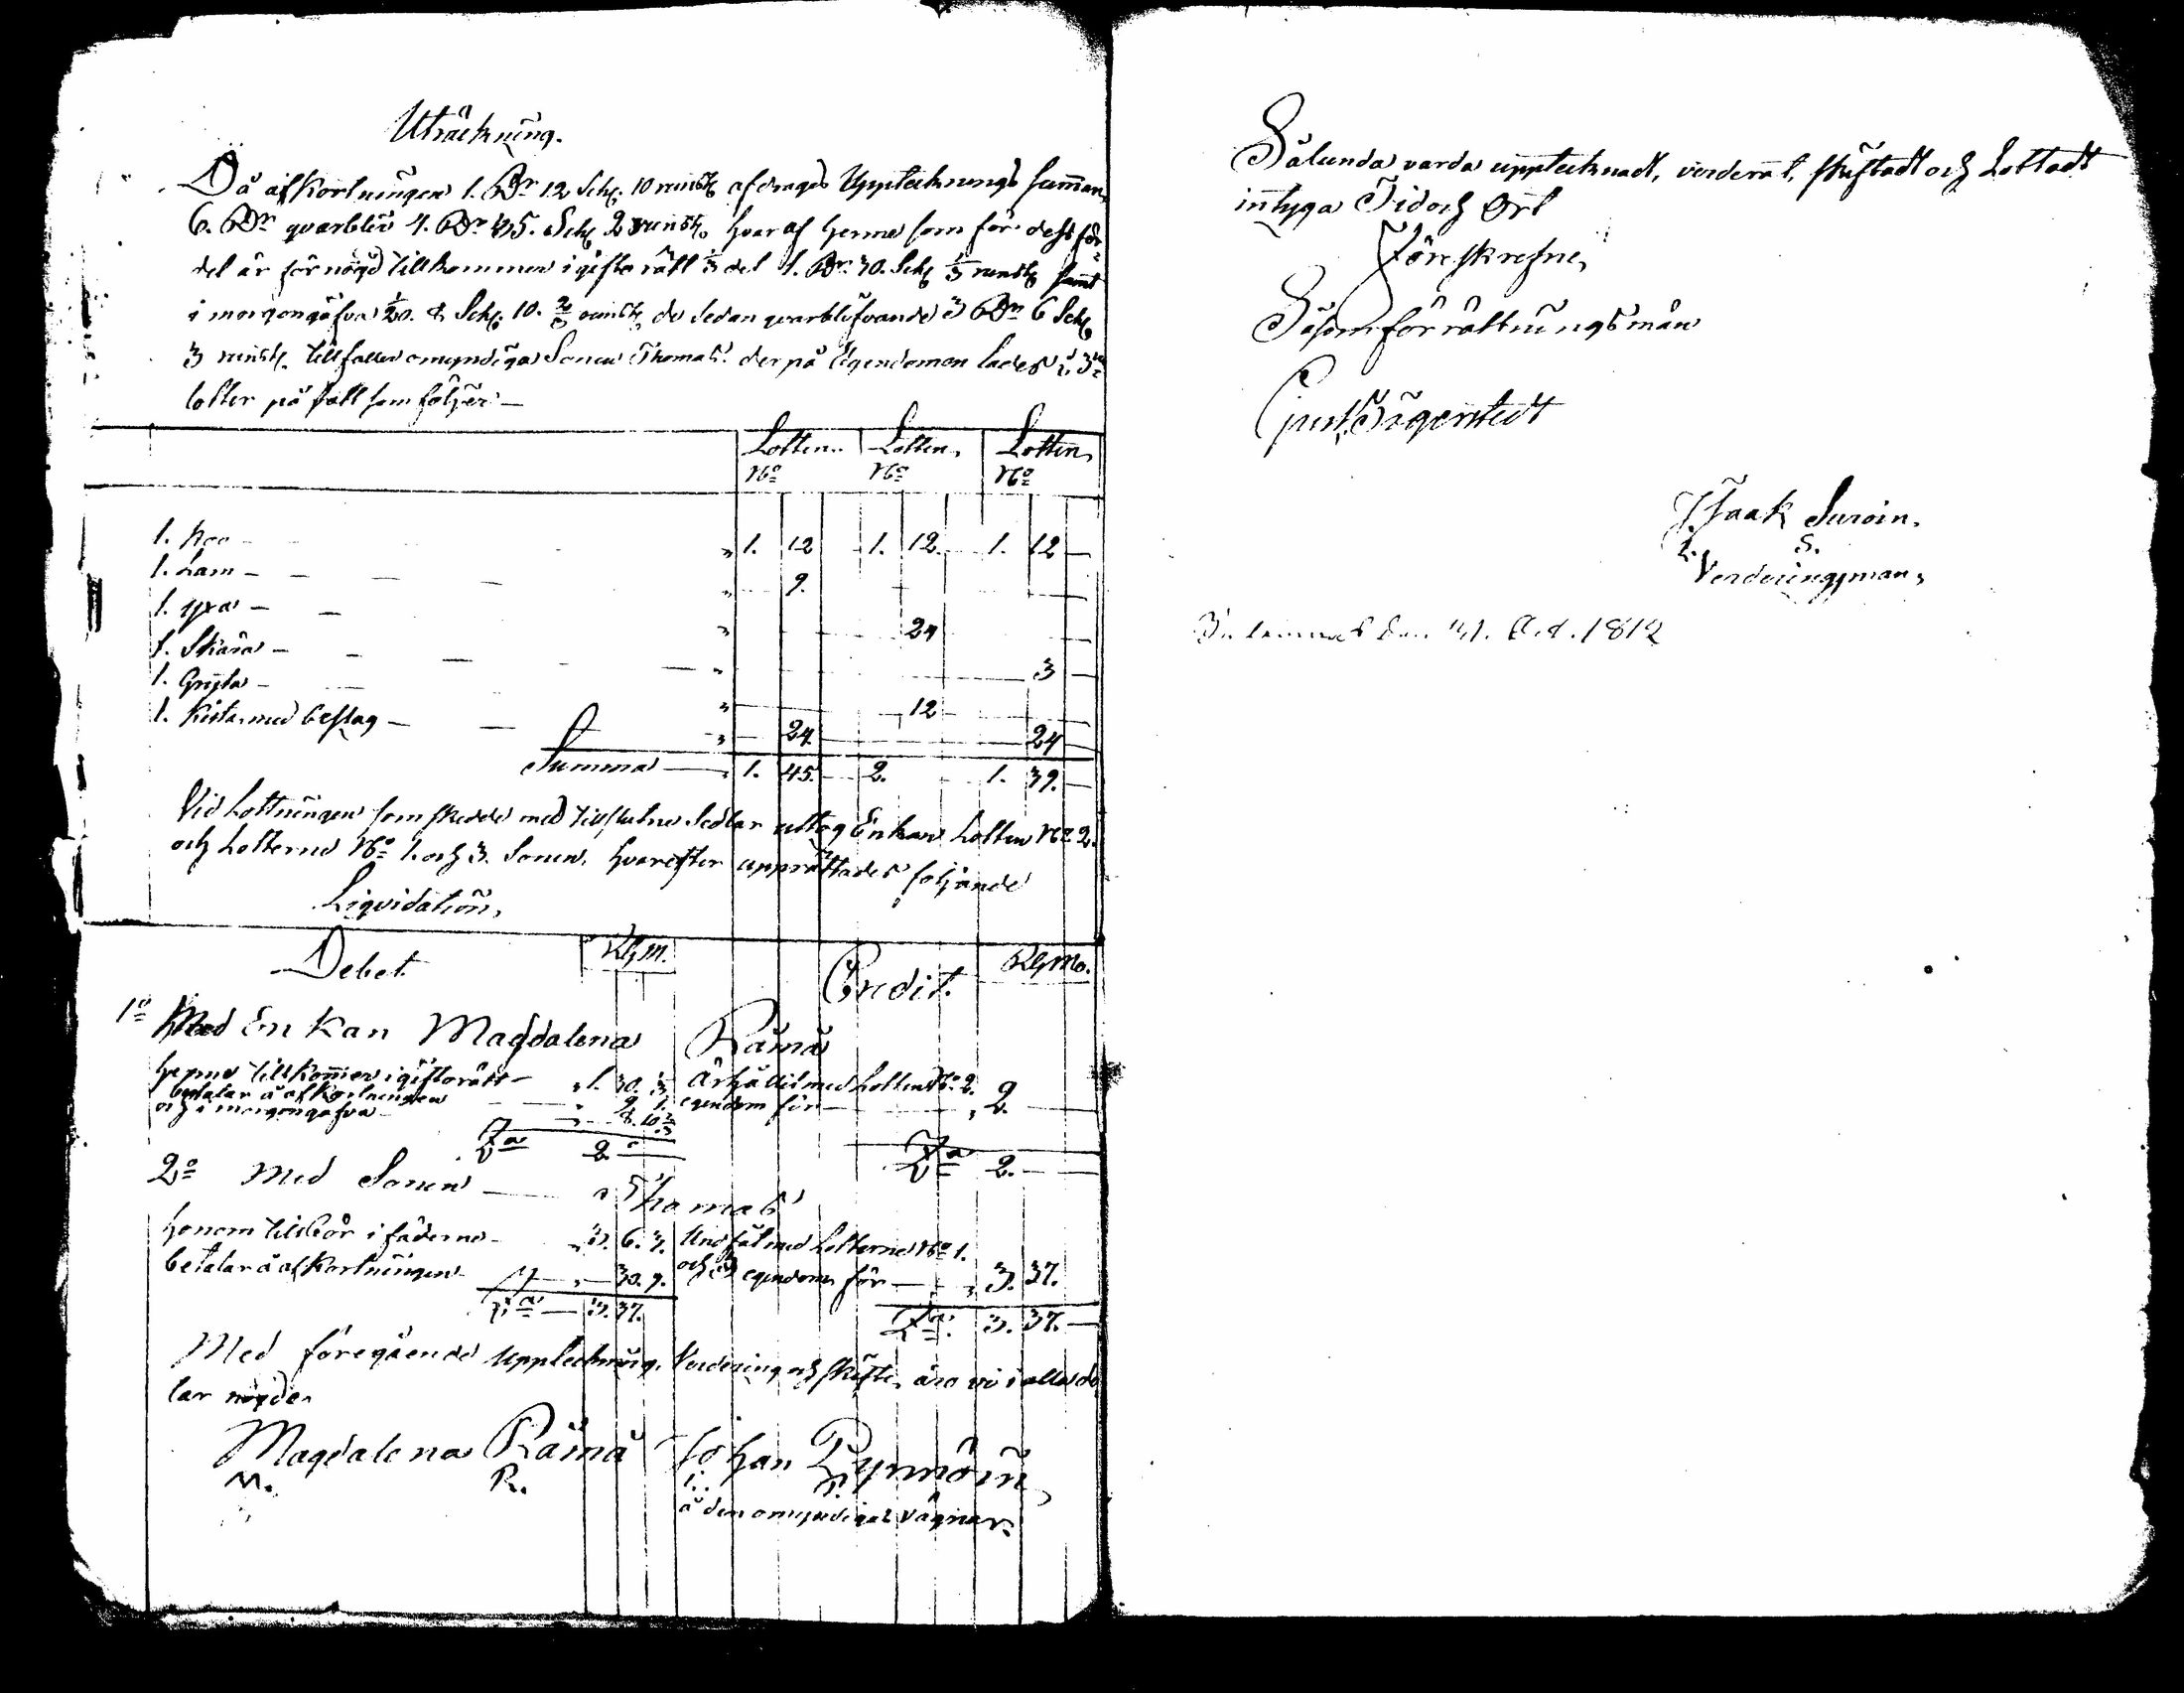 Uträckning.
Då afkortningen 1. Rdr 12 Sch; 10 runst; afdrages Upptecknings summan
6. Rdr qvarblir 4. Rdr 45. Sch; 2 runst; hvaraf henne som för dess för=
del är förnögd tillkommer i gifto rätt 1/3 del 1. Rdr 30. Sch; 1/3 runst; samt
i morgongåfva 1/20. 8 Sch; 10. 2/3 runst; de sedan qvarblifvande 3 Rdr 6 Sch;
3 runst; tillfaller omyndiga Sonen Thomas. der på Egendomen lades i 3ne
lotter på sätt som följer —
Lotten Lotten Lotten
No No No
1. Koo — " 1. 12 1. 12 1. 12 —
1. Lam — " 9.
1. yxa — " 24
1. Skära — " 3 —
1. Gryta — " 12
1. Kista med beslag — " 24. 24
Summa — 1. 45. 2. 1. 39. —
Vid Lottningen som skedde med tillslutne Sedlar uttog Enkan Lotten No 2.
och Lotterne No 1. och 3. Sonen, hvarefter upprättades följande
Liqvidation,
Debet RGm. Credit. RGm.
1o Med Enkan Magdalena Rämä
henne tillkommer i giftorätt — 1. 30. 1/3 Ärhållit med Lotten No 2.
betalar å afkortningen — 9. 1. egendom för — 2. —
och i morgongåfva — 8. 10. 2/3
Sa 2. — Sa 2. —
2o Med Sonen — Thomas
honom tillkår i fäderne — 3. 6. 3. Undfåt med Lotterne No 1.
betalar å afkortningen — 30. 9. och 3 egendom för — 3. 37.
Sa — 3. 37. Sa. 3. 37. —
Med föregående Uppteckning, Verdering och skifte, äro vi i alla de
lar nögde.
Magdalena Rämä Johan Pynnöin
M. R. I. P.
å den omyndigas vägnar.
Sålunda varda upptecknadt, verderat, skiftadt och Lottadt
intyga Tid och Ort
Föreskrefne,
Såsom förrättningsmän
Gust. Sigerstedt
Isaak Suroin.
I. S.
Verderingsman,
den 31. Oct. 1812